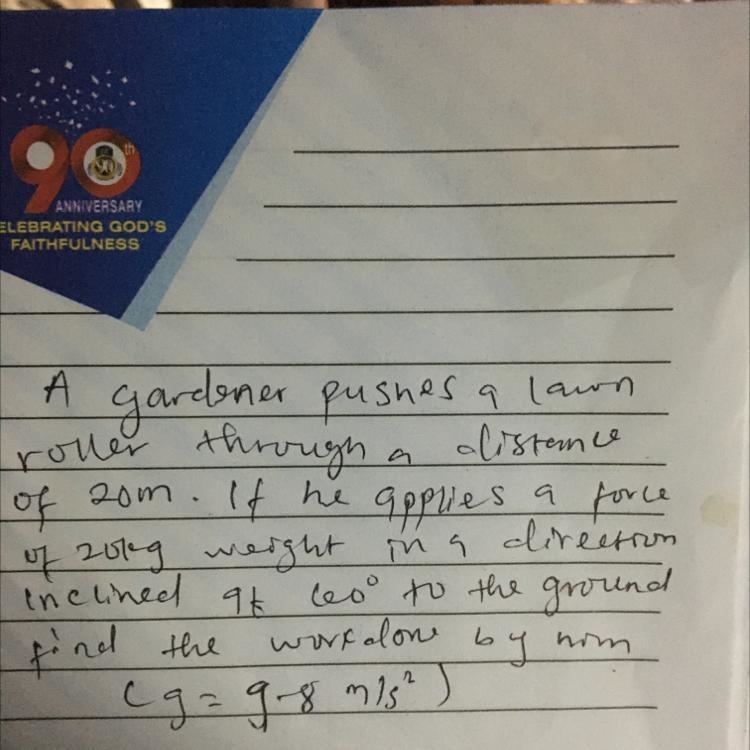 90th
ANNIVERSARY
ELEBRATING GOD'S
FAITHFULNESS
A gardener pushes a lawn
roller through a distance
of 20m. If he applies a force
of 20kg weight in a direction
inclined at 60° to the ground
find the workdone by him
(g = 9.8 m/s²)